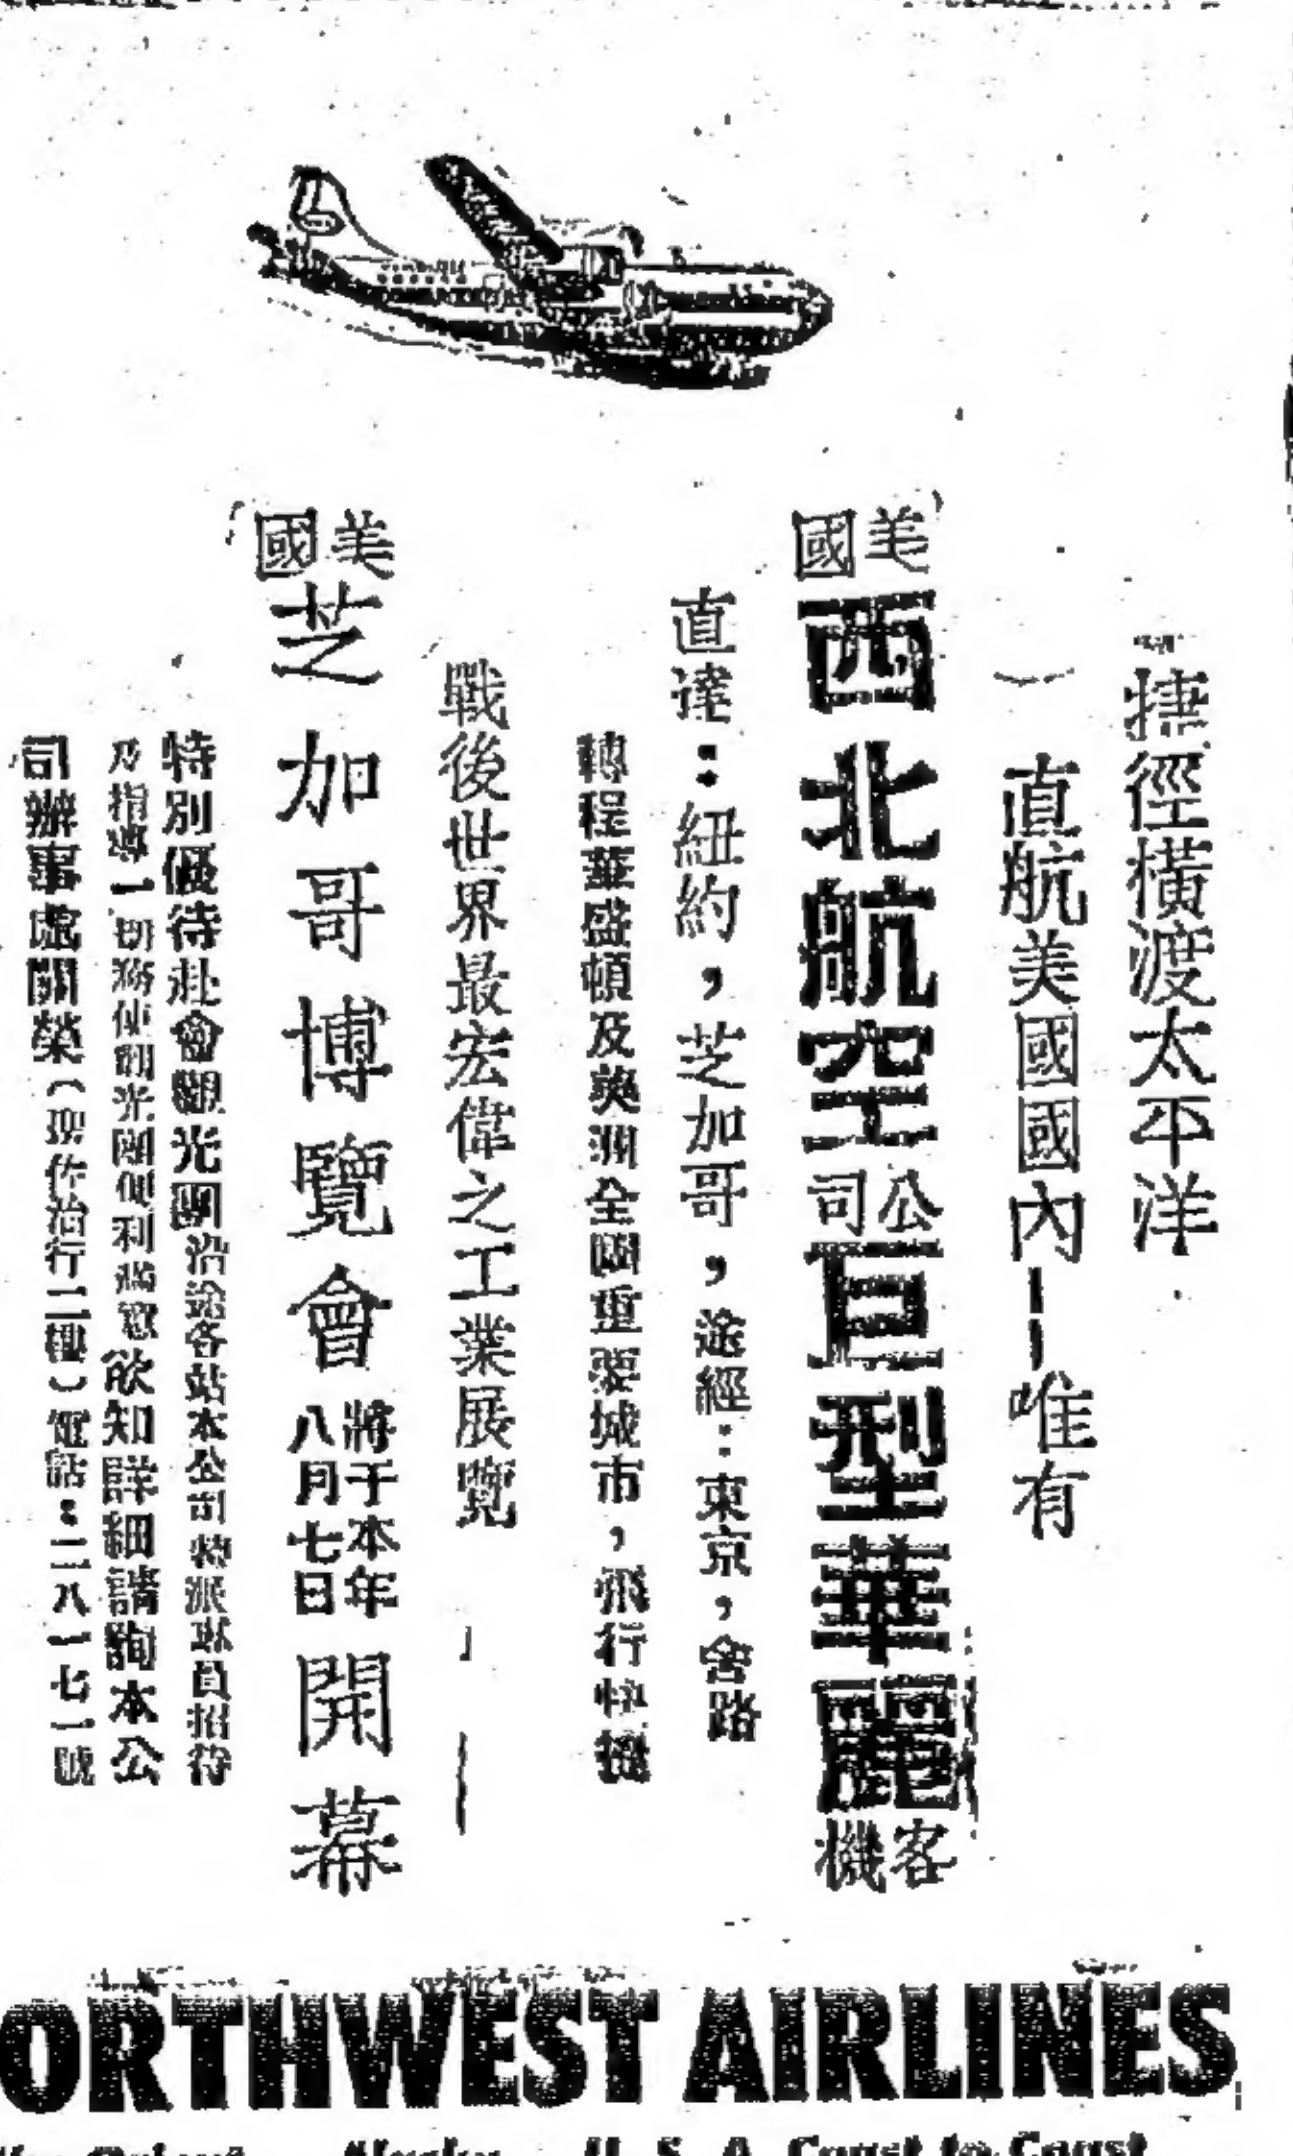 捷徑橫渡太平洋
直航美國國內——唯有
美國西北航空公司巨型華麗客機
直達：紐約，芝加哥，途經：東京，舍路
轉程華盛頓及美洲全國重要城市，飛行快捷
戰後世界最宏偉之工業展覽
美國芝加哥博覽會將于本年八月七日開幕
特別優待赴會觀光團沿途各站本公司特派職員招待
乃指導一切務使觀光團便利滿意欲知詳細請詢本公
司辦事處關榮（現作治行二樓）電話：二八一七一號
ORTHWEST AIRLINES
U. S. A. Coast to Coast